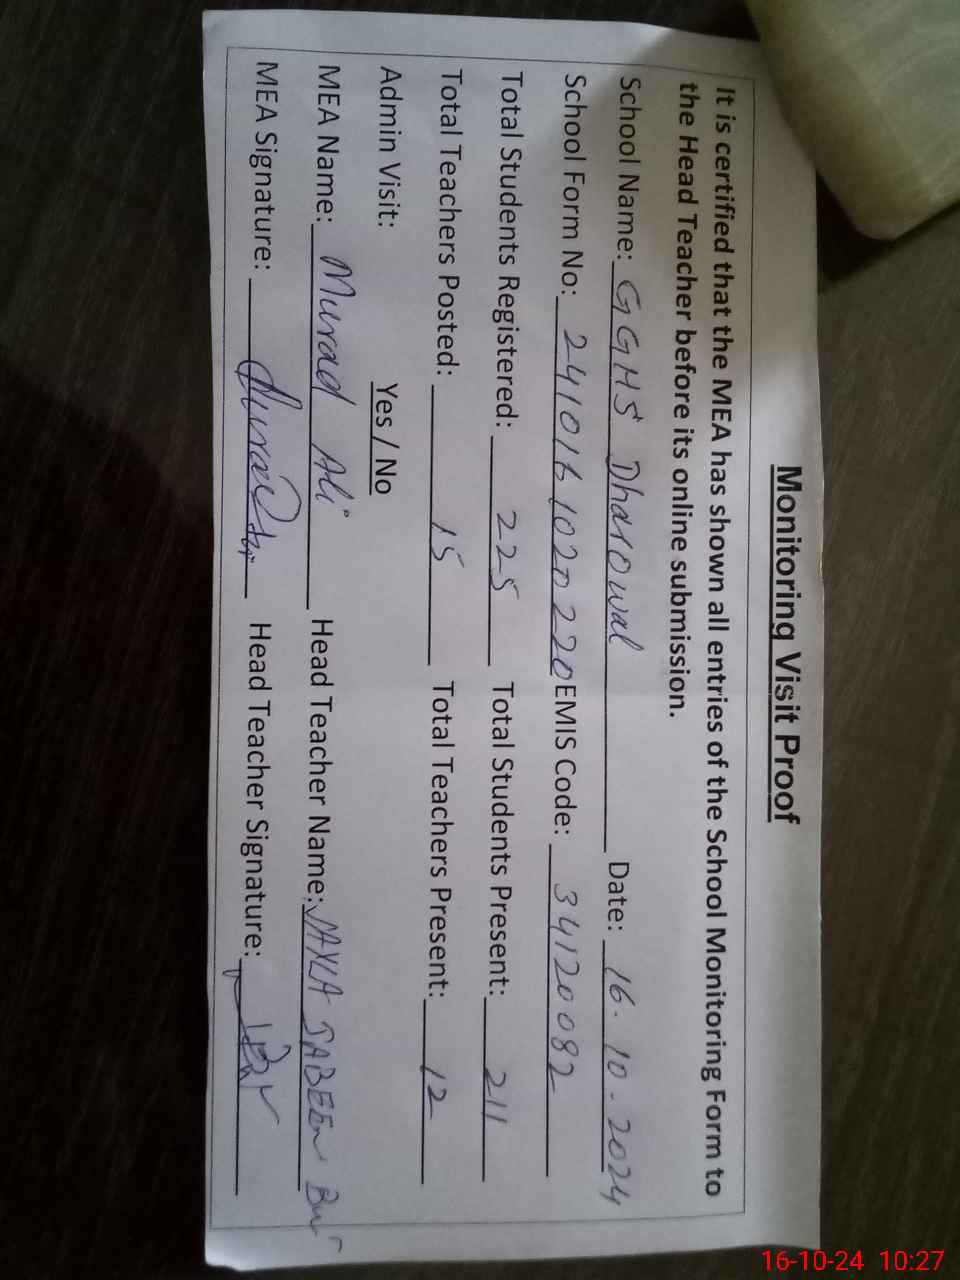 Monitoring Visit Proof
It is certified that the MEA has shown all entries of the School Monitoring Form to
the Head Teacher before its online submission.
School Name: GGHS Dharowal Date: 16-10-2024
School Form No: 241016102022 0 EMIS Code: 34120082
Total Students Registered: 225 Total Students Present: 211
Total Teachers Posted: 15 Total Teachers Present: 12
Admin Visit: Yes / No
MEA Name: Murad Ali Head Teacher Name: JABEEN
MEA Signature: Head Teacher Signature:
16-10-24 10:27